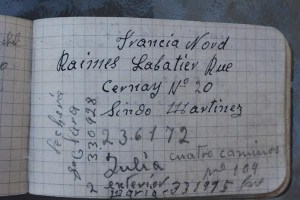 Francia Nord
Raimes Labatier Rue
Cernay Nº 20
Sindo Martinez
236172
Julia
cuatro caminos
nº 109
2 exterior
Maria = 331975
Pechera
330928